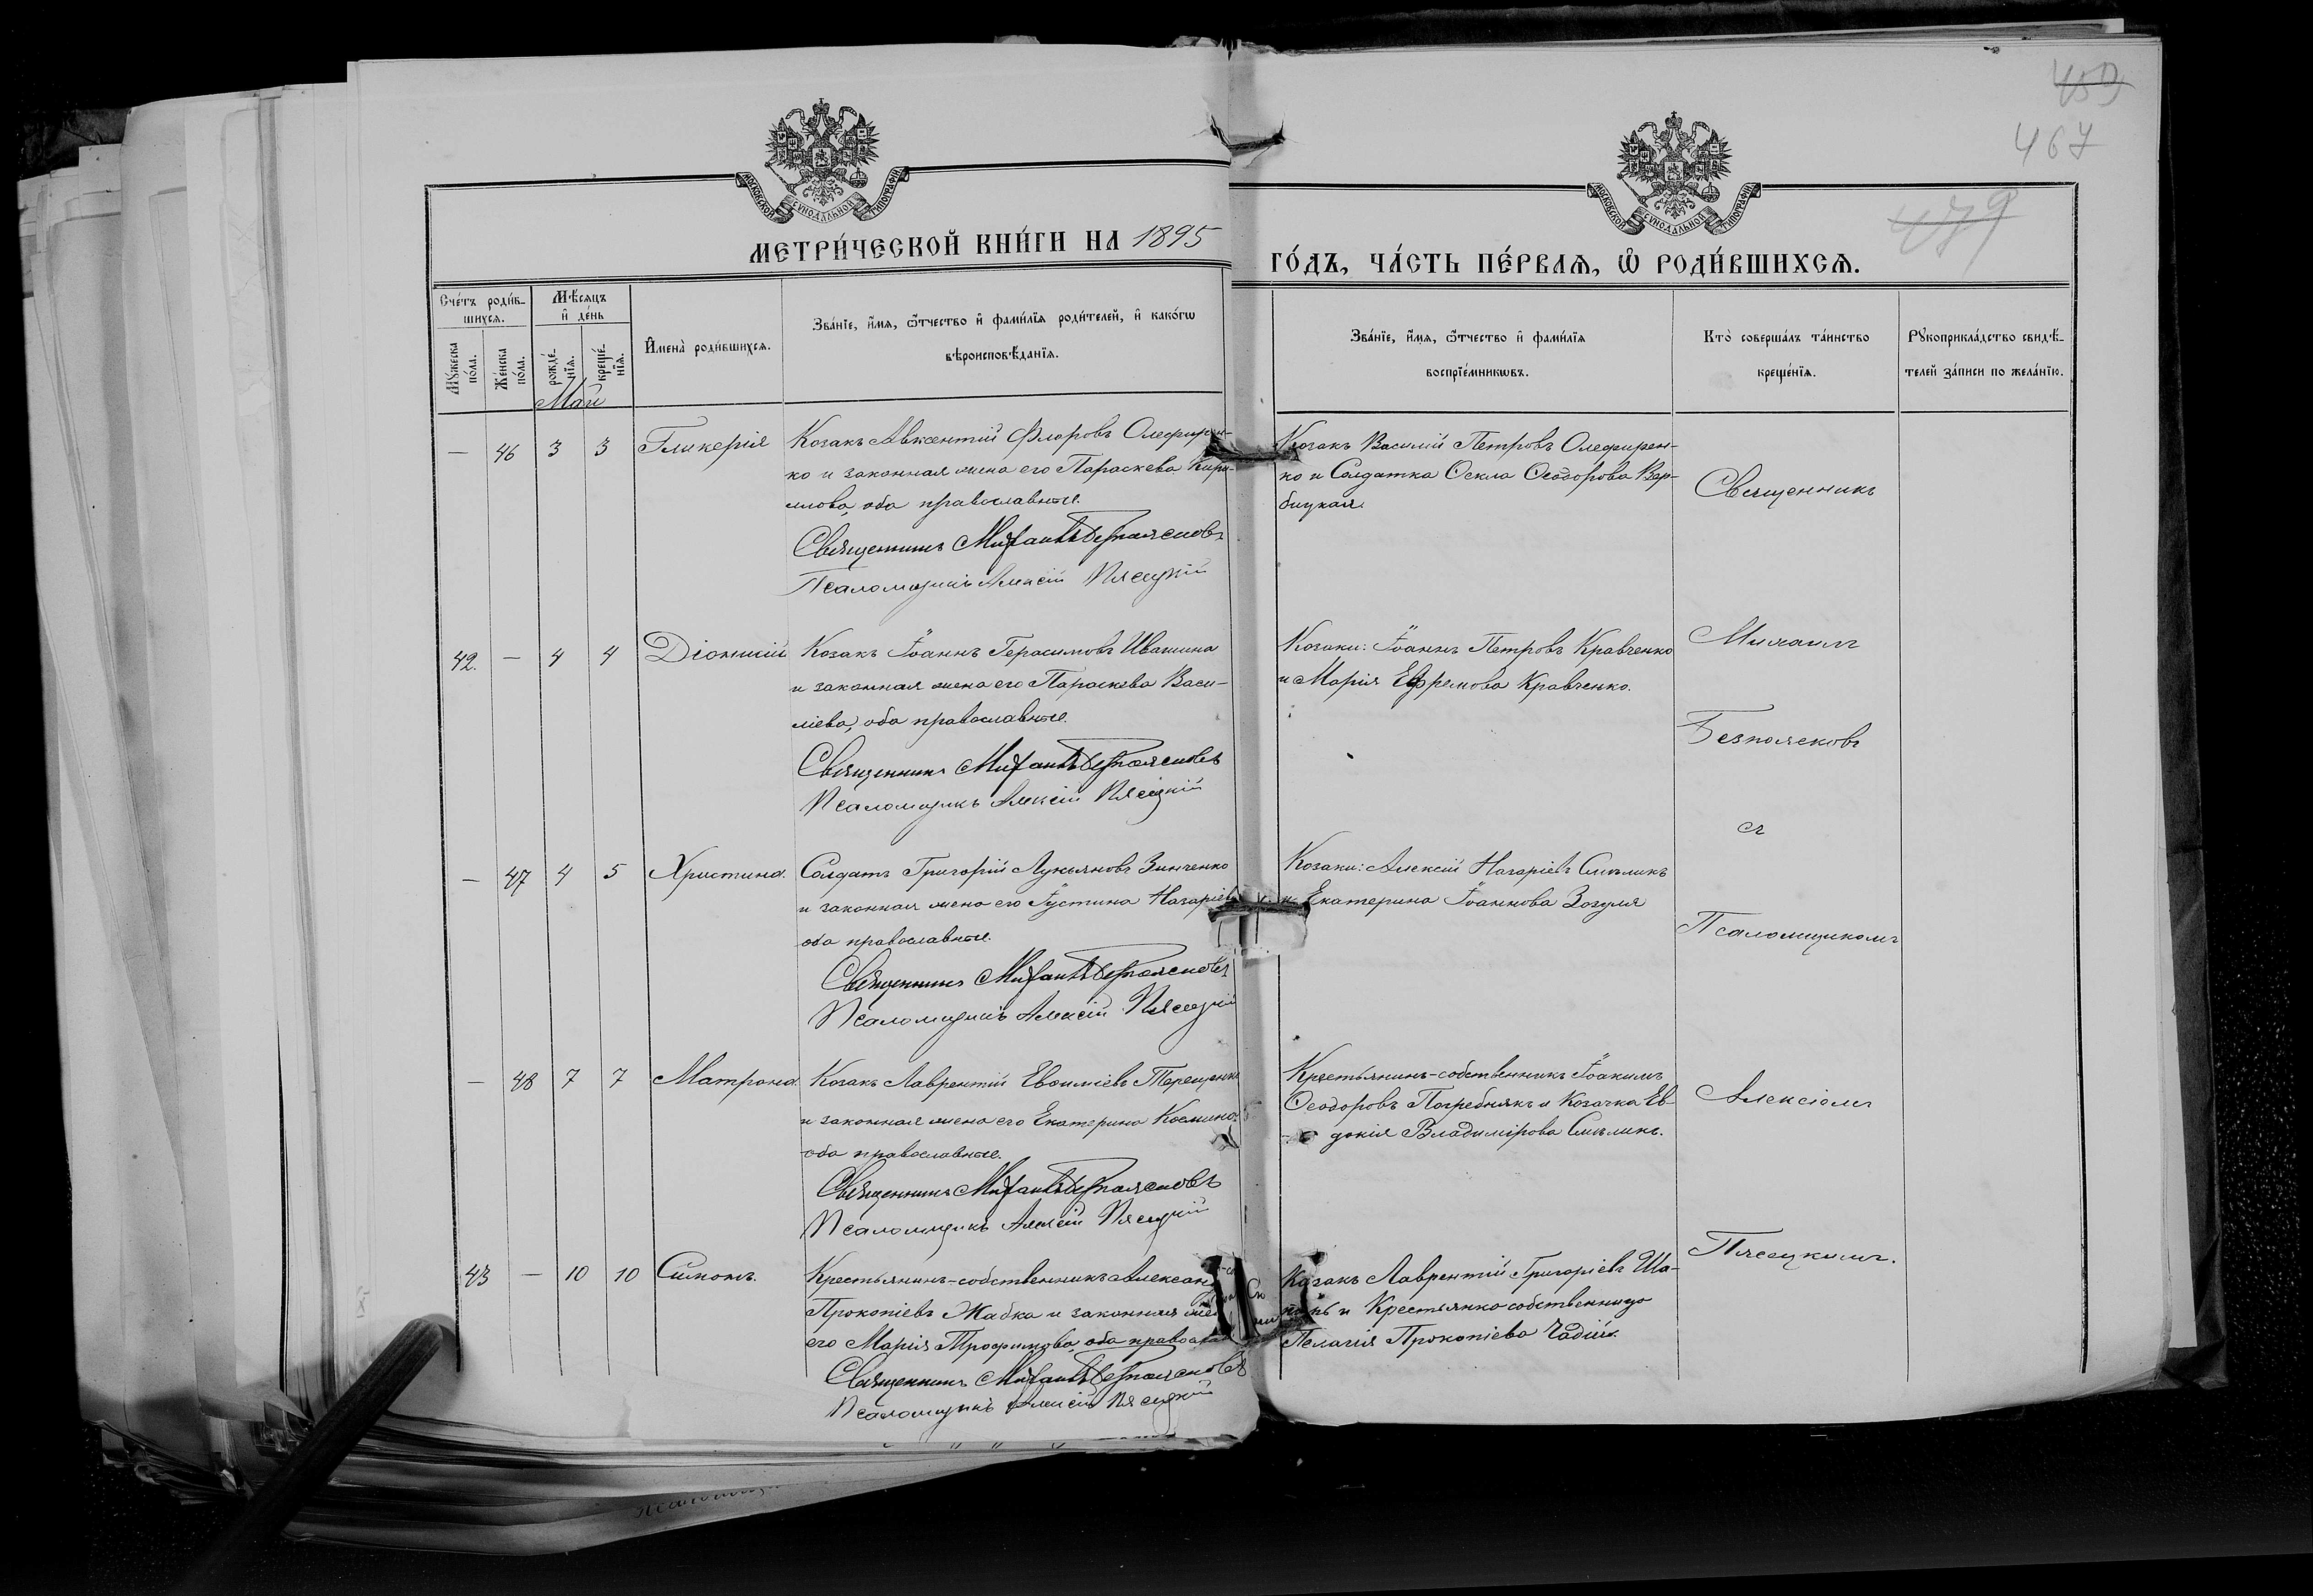 459
467
479
МОСКОВСКОЙ СѴНОДАЛЬНОЙ ТИПОГРАФІИ
МОСКОВСКОЙ СѴНОДАЛЬНОЙ ТИПОГРАФІИ
МЕТРИ́ЧЕСКОЙ КНИ́ГИ НА 1895
ГО́ДЪ, ЧА́СТЬ ПЕ́РВАѦ, Ѽ РОДИ́ВШИХСѦ.
Сче́тъ роди́в-
шихсѧ.
Мѣ́сяцъ
и҆ де́нь
Мꙋ́жеска
по́ла.
Же́нска
по́ла.
рожде́-
нїѧ.
креще́-
нїѧ.
И҆мена̀ роди́вшихсѧ.
Зва́нїе, и҆́мѧ, ѻ҆́тчество и҆ фами́лїѧ роди́телей, и҆ како́гѡ
вѣроисповѣ́данїѧ.
Зва́нїе, и҆́мѧ, ѻ҆́тчество и҆ фами́лїѧ
воспрїе́мникѡвъ.
Кто̀ соверша́лъ та́инство
креще́нїѧ.
Рꙋкоприкла́дство свидѣ́-
телей за́писи по жела́нїю.
Май
— 46 3 3 Гликерія
Козакъ Авксентій Флоровъ Олефирен-
ко и законная жена его Параскева Кири-
лова, оба православные.
Священникъ Михаилъ Безпоясковъ
Псаломщикъ Алексій Пясецкій
Козакъ Василій Петровъ Олефирен-
ко и Солдатка Ѳекла Ѳеодорова Вер-
бицкая.
Священникъ
42. — 4 4 Діонисій
Козакъ Іоаннъ Герасимовъ Ивашина
и законная жена его Параскева Васи-
ліева, оба православные.
Священникъ Михаилъ Безпоясковъ
Псаломщикъ Алексій Пясецкій
Козаки: Іоаннъ Петровъ Кравченко
и Марія Ефремова Кравченко.
Михаилъ
Безпоясковъ
съ
— 47 4 5 Христина.
Солдатъ Григорій Лукьяновъ Зинченко
и законная жена его Іустина Назаріева
оба православные.
Священникъ Михаилъ Безпоясковъ
Псаломщикъ Алексій Пясецкій
Козаки: Алексій Назаріевъ Смѣликъ
и Екатерина Іоаннова Зозуля
Псаломщикомъ
— 48 7 7 Матрона.
Козакъ Лаврентій Евѳиміевъ Терещенко
и законная жена его Екатерина Космина,
оба православные.
Священникъ Михаилъ Безпоясковъ
Псаломщикъ Алексій Пясецкій
Крестьянинъ-собственникъ Іоакимъ
Ѳеодоровъ Погребнякъ и Козачка Ев-
докія Владимірова Смѣликъ.
Алексіемъ
43 — 10 10 Симонъ.
Крестьянинъ-собственникъ Александ
Прокопіевъ Жабка и законная жен
его Марія Трофимова, оба православ
Священникъ Михаилъ Безпоясковъ
Псаломщикъ Алексій Пясецкій
Козакъ Лаврентій Григоріевъ Ша-
и Крестьянка собственница
Пелагія Прокопіева
Пясецкимъ.